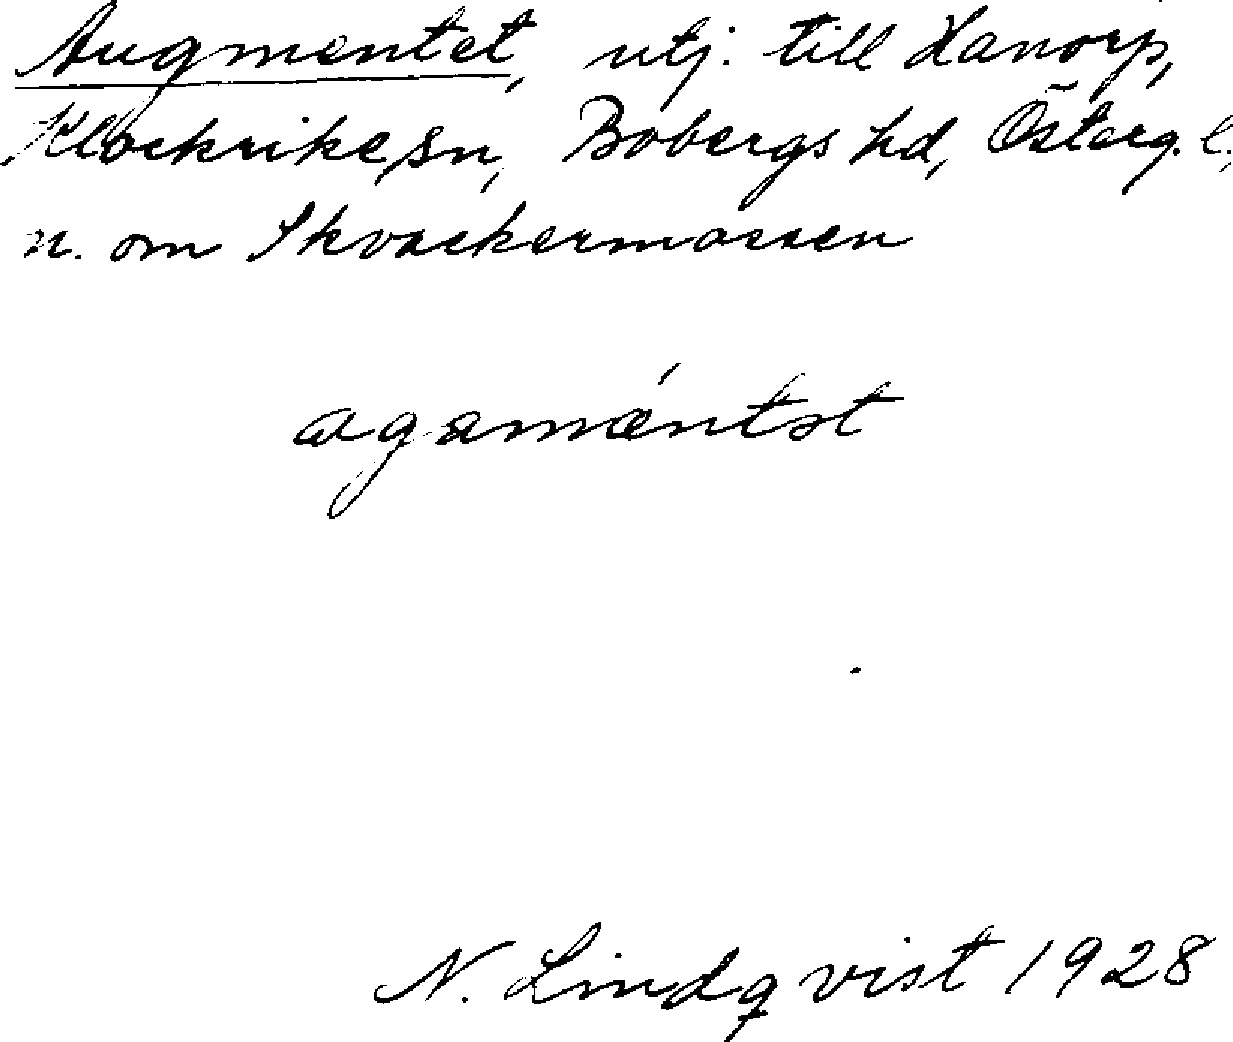 Augmentet, utj. till Hanorp,
Klockrike sn, Bobergs hd, Österg. l.,
n. om Skvackermossen
agamǽntət
N. Lindqvist 1928